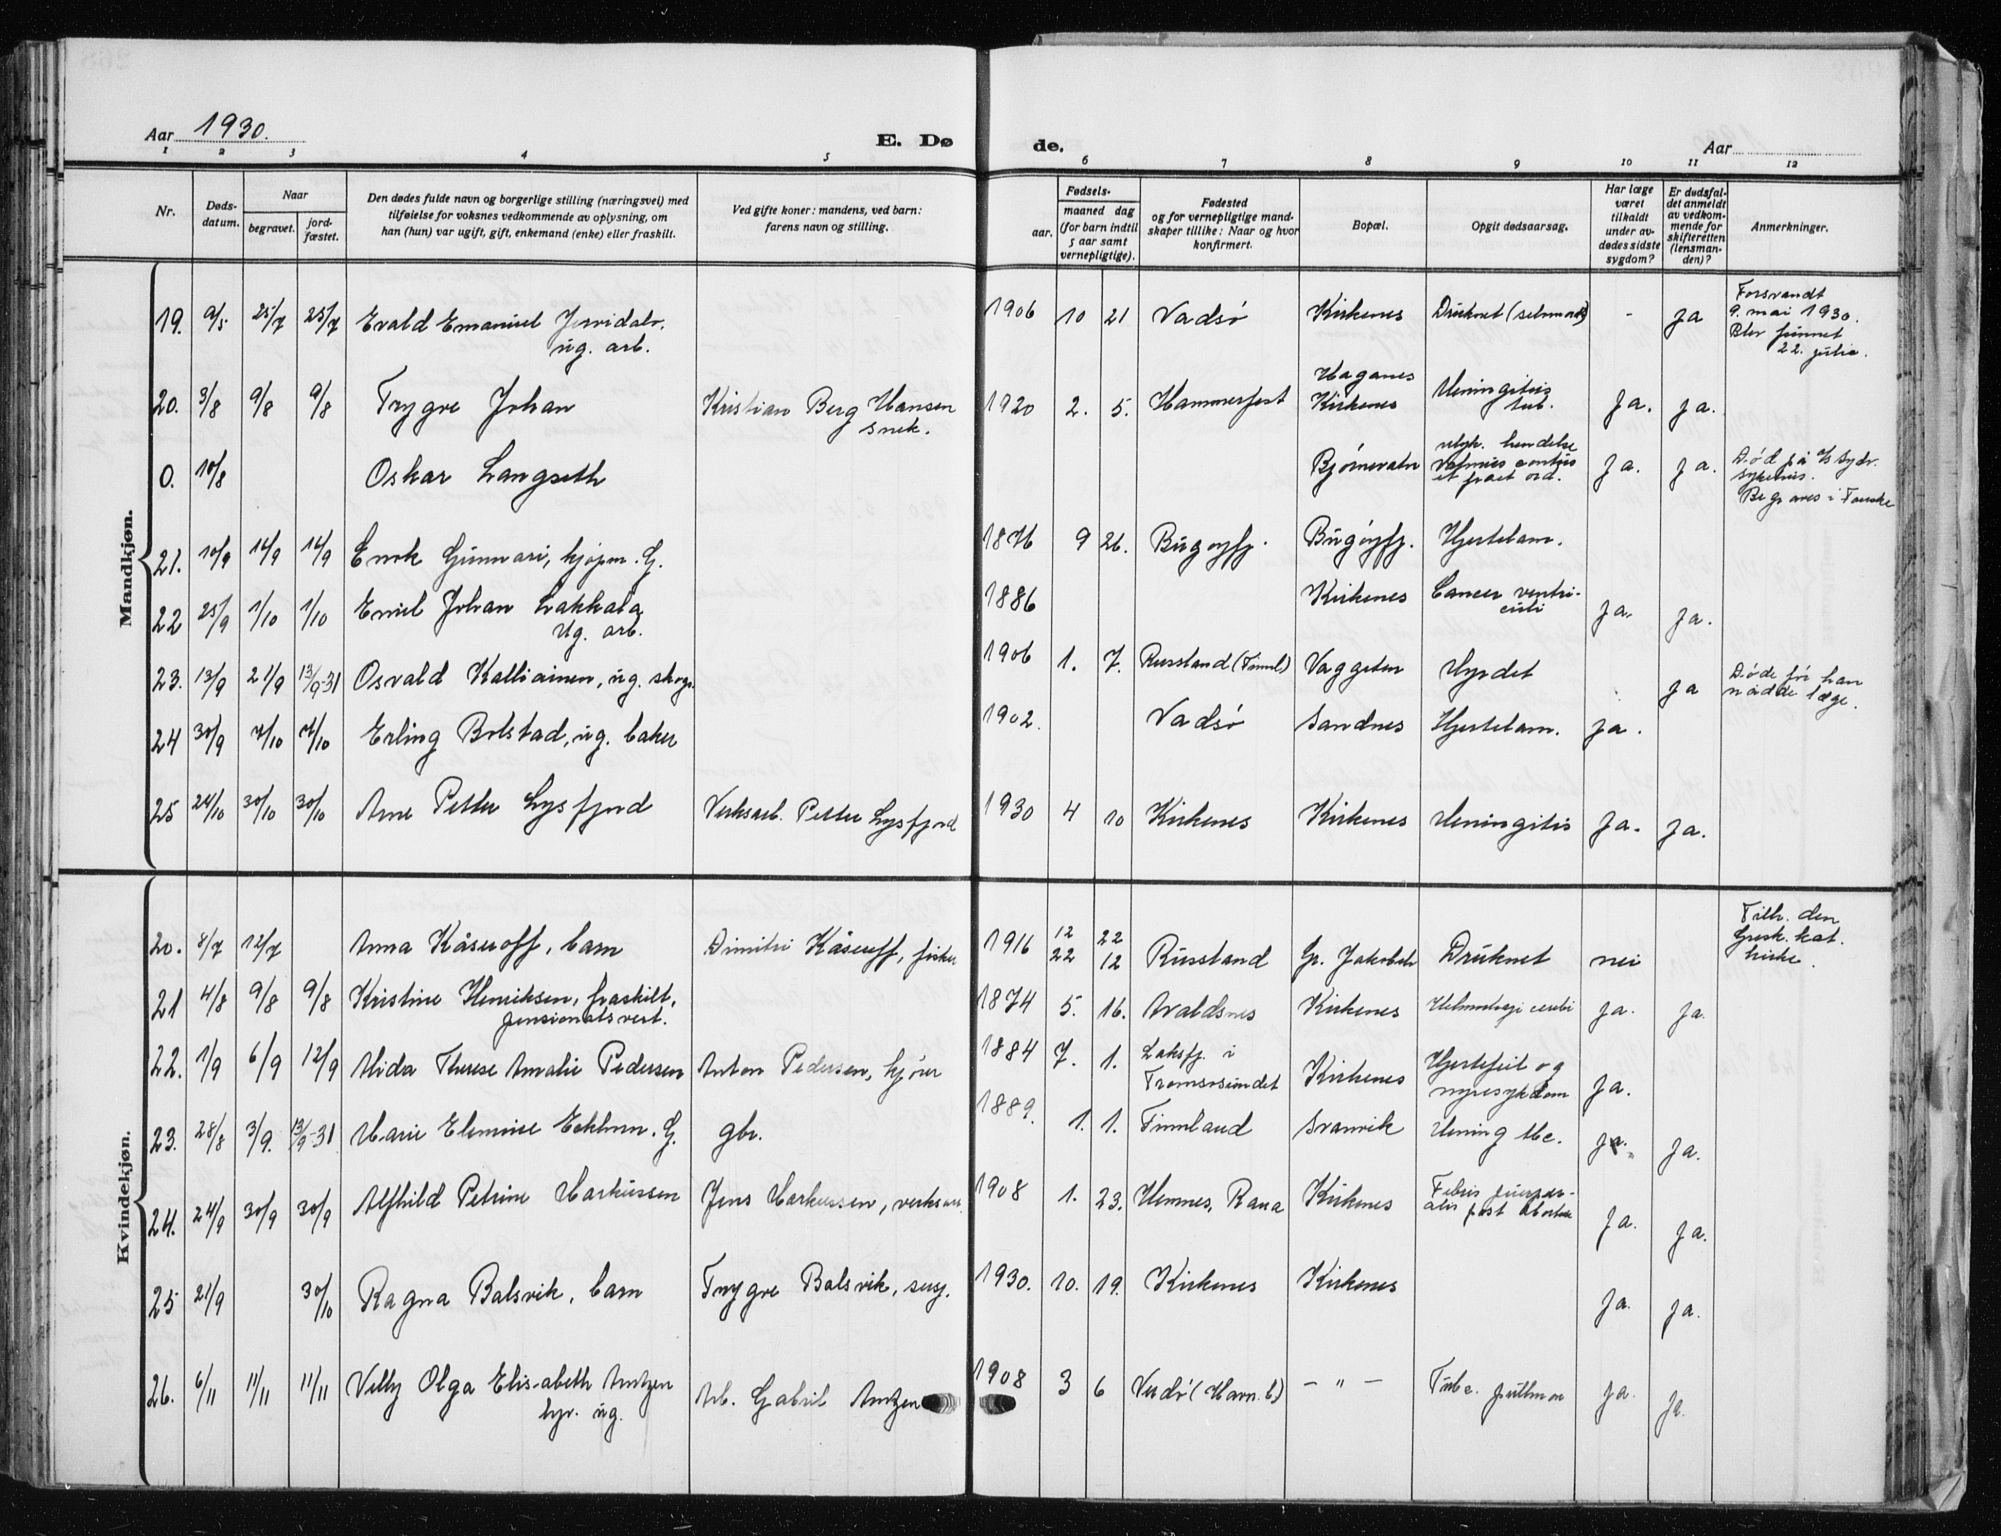 Aar 1930. E. Døde. Aar
1 2 3 4 5 6 7 8 9 10 11 12
Nr. Døds-datum. Naar begravet. jord-fæstet. Den dødes fulde navn og borgerlige stilling (næringsvei) med tilføielse for voksnes vedkommende av oplysning, om han (hun) var ugift, gift, enkemand (enke) eller fraskilt. Ved gifte koner: mandens, ved barn: farens navn og stilling. Fødsels- aar. maaned dag (for barn indtil 5 aar samt vernepligtige). Fødested og for vernepligtige mandskaper tillike: Naar og hvor konfirmert. Bopæl. Opgit dødsaarsag. Har læge været tilkaldt under avdødes sidste sygdom? Er dødsfaldet anmeldt av vedkommende for skifteretten (lensmanden)? Anmerkninger.
Mandkjøn.
19. 9/5 25/7 25/7 Evald Emanuel ug. arb. 1906 10 21 Vadsø Kirkenes Druknet (selvmord) - ja Forsvandt 9. mai 1930. Blev funnet 22. julie.
20. 3/8 9/8 9/8 Trygve Johan Kristian Berg Hansen snek. 1920 2. 5. Hammerfest Haganes Kirkenes Meningitis tub. ja. ja.
0. 10/8 Oskar Langseth Bjørnevatn ja. ja. Død på sykehus. Begraves i Fauske
21. 10/9 14/9 14/9 Enok Gunnari, kjøpm. G. 1876 9 26. Bugøyfj. Bugøyfj. Hjertelam.
22 25/9 1/10 1/10 Emil Johan Lakkala Ug. arb. 1886 Kirkenes Cancer ventriculi ja. ja.
23. 13/9 21/9 13/9-31 Osvald Kalliainen, ug. skogs. 1906 1. 7. Russland (Finnl) Vaggetem Myrdet ja Døde før han nådde læge.
24 30/9 7/10 7/10 Erling Bolstad, ug. baker 1902. Vadsø Sandnes Hjertelam. ja.
25 24/10 30/10 30/10 Arne Petter Lysfjord Verksarb. Petter Lysfjord 1930 4 10 Kirkenes Kirkenes Meningitis ja. ja.
Kvindekjøn.
20. 8/7 12/7 Anna Kåseroff, barn Dimitri Kåseroff, fisker 1916 12 22 22 12 Russland Gr. Jakobselv Druknet nei Tilh. den Gresk. kat. kirke.
21 4/8 9/8 9/8 Kristine Henriksen, fraskilt, pensionatsvert. 1874 5. 16. Avaldsnes Kirkenes ja. ja.
22. 1/9 6/9 12/9 Alida Therese Amalie Pedersen Anton Pedersen, kjører 1884 7. 1. Laksfj. i Tromsøsundet Kirkenes Hjertefeil og nyresykdom ja.
23. 28/8 3/9. 13/9-31 Marie G. gbr. 1889. 1. 1. Finnland Svanvik Mening tbc. ja. ja.
24. 24/9 30/9 30/9 Alfhild Petrine Markussen Jens Markussen, verksarb. 1908 1. 23. Hemnes, Rana Kirkenes Febris puerperalis post abortum ja. ja.
25 21/9 30/10 Ragna Balsvik, barn Trygve Balsvik, 1930. 10. 19. Kirkenes Kirkenes ja. ja.
26. 6/11 11/11 11/11 Velly Olga Elisabeth Antzen ug. Arb. Gabriel Antzen 1908 3 6 Vadsø (Havn. b) - " - Tube. pulmon ja. ja.